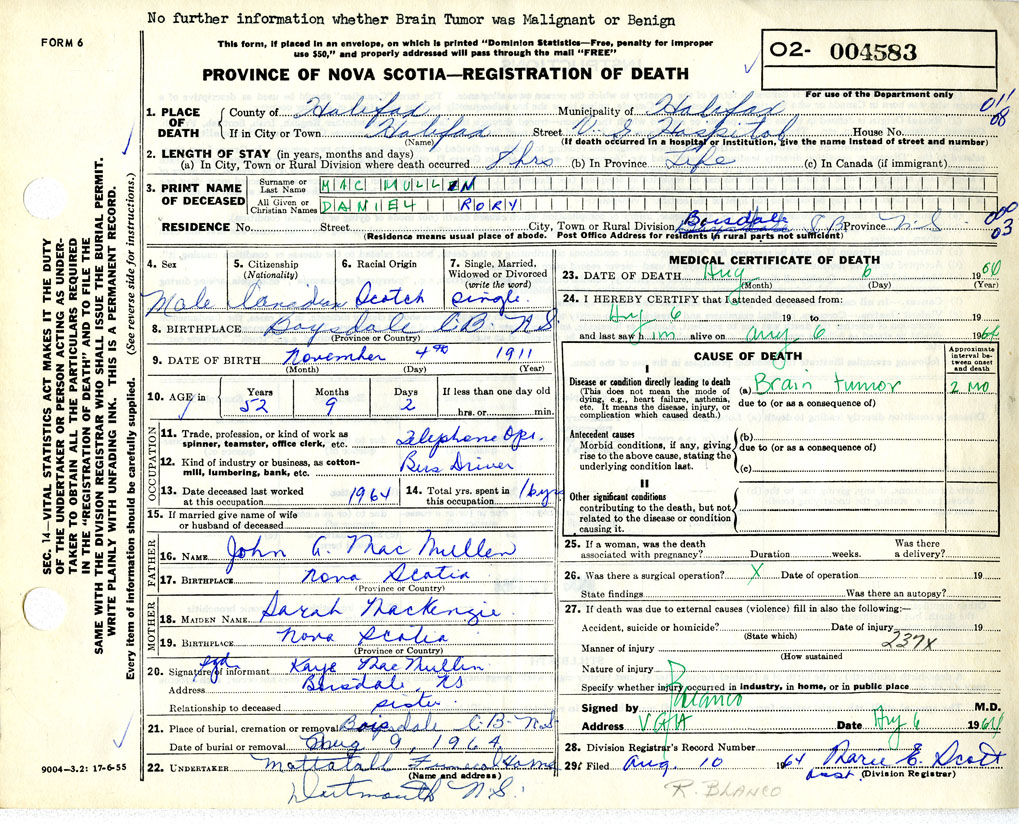 No further information whether Brain Tumor was Malignant or Benign
FORM 6
This form, if placed in an envelope, on which is printed "Dominion Statistics—Free, penalty for improper
use $50," and properly addressed will pass through the mail "FREE"
PROVINCE OF NOVA SCOTIA—REGISTRATION OF DEATH
O2- 004583
For use of the Department only
011
08
1. PLACE OF DEATH
County of Halifax Municipality of Halifax
If in City or Town Halifax Street V G Hospital House No.
(Name) (If death occurred in a hospital or institution, give the name instead of street and number)
2. LENGTH OF STAY (in years, months and days)
(a) In City, Town or Rural Division where death occurred 8 hrs (b) In Province Life (c) In Canada (if immigrant)
3. PRINT NAME OF DECEASED
Surname or Last Name MAC MULLIN
All Given or Christian Names DANIEL RORY
RESIDENCE No. Street City, Town or Rural Division Boisdale C B Province N S
000
03
(Residence means usual place of abode. Post Office Address for residents in rural parts not sufficient)
4. Sex
Male
5. Citizenship
(Nationality)
Canadian
6. Racial Origin
Scotch
7. Single, Married,
Widowed or Divorced
(write the word)
Single.
8. BIRTHPLACE Boysdale C.B. N.S.
(Province or Country)
9. DATE OF BIRTH November 4th 1911
(Month) (Day) (Year)
10. AGE in
Years 52
Months 9
Days 2
If less than one day old
hrs. or min.
OCCUPATION
11. Trade, profession, or kind of work as
spinner, teamster, office clerk, etc. Telephone Opr.
12. Kind of industry or business, as cotton-
mill, lumbering, bank, etc. Bus Driver
13. Date deceased last worked
at this occupation 1964
14. Total yrs. spent in
this occupation
15. If married give name of wife
or husband of deceased
FATHER
16. NAME John A. Mac Mullen
17. BIRTHPLACE Nova Scotia
(Province or Country)
MOTHER
18. MAIDEN NAME Sarah MacKenzie
19. BIRTHPLACE Nova Scotia
(Province or Country)
20. Signature of informant sgd Kaye MacMullin
Address Boisdale, NS
Relationship to deceased sister
21. Place of burial, cremation or removal Boisdale C-B- N.S.
Date of burial or removal Aug 9, 1964
22. UNDERTAKER Mattatall Funeral Home
(Name and address)
Dartmouth N.S.
MEDICAL CERTIFICATE OF DEATH
23. DATE OF DEATH Aug 6 1964
(Month) (Day) (Year)
24. I HEREBY CERTIFY that I attended deceased from:
Aug 6 19 to 19
and last saw him alive on Aug 6 1964
CAUSE OF DEATH
Approximate
interval be-
tween onset
and death
I
Disease or condition directly leading to death
(This does not mean the mode of
dying, e.g., heart failure, asthenia,
etc. It means the disease, injury, or
complication which caused death.)
(a) Brain tumor 2 MO
due to (or as a consequence of)
Antecedent causes
Morbid conditions, if any, giving
rise to the above cause, stating the
underlying condition last.
(b)
due to (or as a consequence of)
(c)
II
Other significant conditions
contributing to the death, but not
related to the disease or condition
causing it.
25. If a woman, was the death
associated with pregnancy? Duration weeks. Was there
a delivery?
26. Was there a surgical operation? X Date of operation 19
State findings Was there an autopsy?
27. If death was due to external causes (violence) fill in also the following:—
Accident, suicide or homicide? Date of injury 19
(State which)
237X
Manner of injury
(How sustained
Nature of injury
Specify whether injury occurred in industry, in home, or in public place
Signed by R Blanco M.D.
Address VGH Date Aug 6 1964
28. Division Registrar's Record Number
29. Filed Aug. 10 1964 Marie E. Scott
asst. (Division Registrar)
R. BLANCO
SEC. 14—VITAL STATISTICS ACT MAKES IT THE DUTY
OF THE UNDERTAKER OR PERSON ACTING AS UNDER-
TAKER TO OBTAIN ALL THE PARTICULARS REQUIRED
IN THE "REGISTRATION OF DEATH" AND TO FILE THE
SAME WITH THE DIVISION REGISTRAR WHO SHALL ISSUE THE BURIAL PERMIT.
WRITE PLAINLY WITH UNFADING INK. THIS IS A PERMANENT RECORD.
Every item of information should be carefully supplied. (See reverse side for instructions.)
9004—3.2: 17-6-55